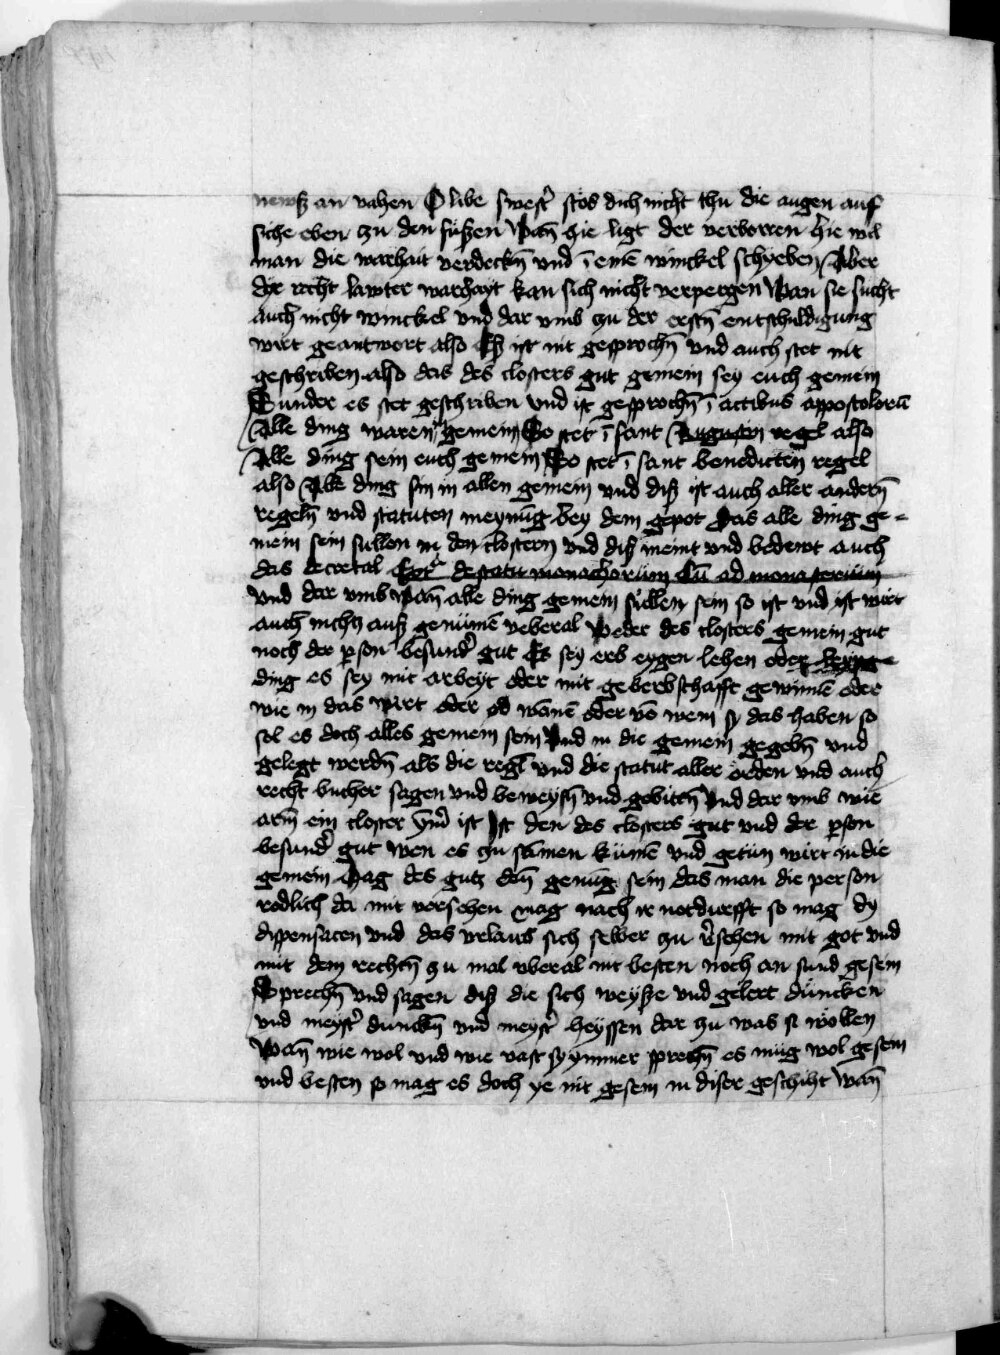 newß an vahen O libe swest̄ stos dich nicht thu die augen auf
siche eben zu den füßen Wan̄ hie ligt der verborren hie wil
man die warhait verdeckn̄ vnd ī einē winckel schyeben Aber
die recht lawter warhayt kan sich nicht verpergen Wan sie sucht
auch nicht winckel vnd dar vmb zu der erstn̄ entschuldigung
wirt geantwort also Eß ist nit gesprochn̄ vnd auch stet nit
geschriben also das des closters gut gemein sey euch gemein
Sunder es stet geschriben vnd ist gesprochn̄ ī actibus appostolorū
Alle ding waren gemein So stet ī sant Augusten regel also
Alle ding sein euch gemein So stet ī sant benedicten regel
also Alle ding sin in allen gemein vnd diß ist auch aller andern̄
regeln̄ vnd statuten meynūg bey dem gepot Das alle ding ge-
mein sein sullen in den clostern vnd diß meint vnd bedewt auch
das decretal Extr̄ de statu monachorum Cū ad monasterium
Vnd dar vmb Wan̄ alle ding gemein süllen sein so ist vnd ist wirt
auch nichtz auß genumē veberal Weder des closters gemein gut
noch der p̄son besund̄ gut Es sey erb eygen lehen oder
ding es sey mit arbeyt oder mit gewerbschafft gewinnē oder
wie in das wirt oder vō wem sy das haben so
sol es doch alles gemein sein Vnd in die gemein gegebn̄ vnd
gelegt werdn̄ als die regl̄ vnd die statut aller orden vnd auch
recht bucher sagen vnd beweysn̄ vnd gebitn̄ Vnd dar vmb wie
arm ein closter ist Ist den des closters gut vnd der p̄son
besund̄ gut wen es zu samen kumē vnd getun wirt in die
gemein Mag des gutz dan̄ genug sein das man die person
redlich da mit versehen mag nach ir notdurfft so mag dy
dispensacen vnd das vrlaub sich selber zu v̄sehen mit got vnd
mit dem rechtn̄ zu mal vberal nit besten noch an sund gesein
Sprechn̄ vnd sagen diß die sich weyße vnd gelert düncken
vnd meyst̄ dunckn̄ vnd meyst̄ heyssen dar zu was si wöllen
Wan̄ wie wol vnd wie vast sy ymmer sprechn̄ es müg wol gesein
vnd besten so mag es doch ye nit gesein in diser geschiht wan̄